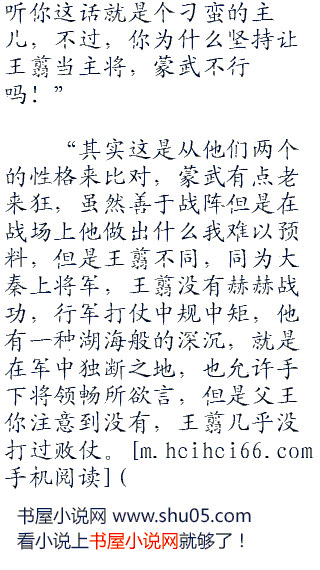 听你这话就是个刁蛮的主
儿，不过，你为什么坚持让
王翦当主将，蒙武不行
吗！”
“其实这是从他们两个
的性格来比对，蒙武有点老
来狂，虽然善于战阵但是在
战场上他做出什么我难以预
料，但是王翦不同，同为大
秦上将军，王翦没有赫赫战
功，行军打仗中规中矩，他
有一种湖海般的深沉，就是
在军中独断之地，也允许手
下将领畅所欲言，但是父王
你注意到没有，王翦几乎没
打过败仗。[m.hcihci66.com
手机阅读](
书屋小说网 www.shu05.com
看小说上书屋小说网就够了！